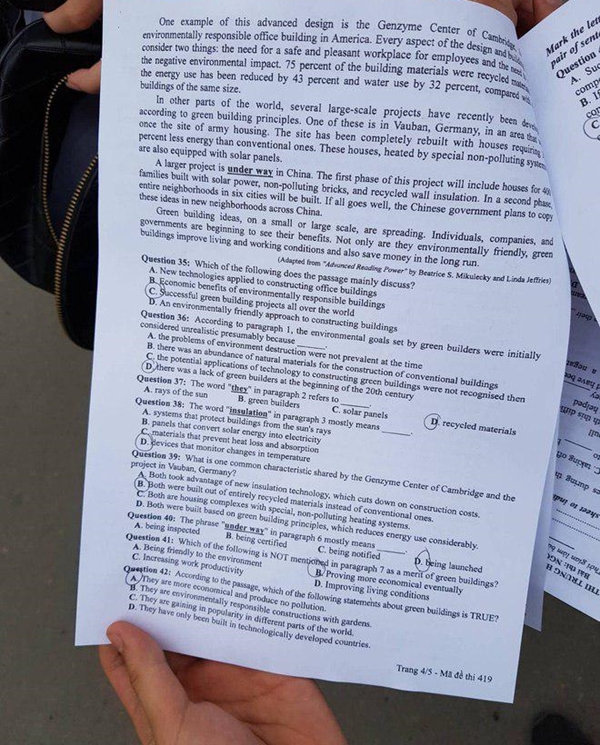 One example of this advanced design is the Genzyme Center of Cambridge,
environmentally responsible office building in America. Every aspect of the design and
consider two things: the need for a safe and pleasant workplace for employees and the need
the negative environmental impact. 75 percent of the building materials were recycled
the energy use has been reduced by 43 percent and water use by 32 percent, compared
buildings of the same size.
In other parts of the world, several large-scale projects have recently been
according to green building principles. One of these is in Vauban, Germany, in an area that
once the site of army housing. The site has been completely rebuilt with houses requiring
percent less energy than conventional ones. These houses, heated by special non-polluting
are also equipped with solar panels.
A larger project is under way in China. The first phase of this project will include houses for
families built with solar power, non-polluting bricks, and recycled wall insulation. In a second phase,
entire neighborhoods in six cities will be built. If all goes well, the Chinese government plans to copy
these ideas in new neighborhoods across China.
Green building ideas, on a small or large scale, are spreading. Individuals, companies, and
governments are beginning to see their benefits. Not only are they environmentally friendly, green
buildings improve living and working conditions and also save money in the long run.
(Adapted from "Advanced Reading Power" by Beatrice S. Mikulecky and Linda Jeffries)
Question 35: Which of the following does the passage mainly discuss?
A. New technologies applied to constructing office buildings
B. Economic benefits of environmentally responsible buildings
C. Successful green building projects all over the world
D. An environmentally friendly approach to constructing buildings
Question 36: According to paragraph 1, the environmental goals set by green builders were initially
considered unrealistic presumably because ______.
A. the problems of environment destruction were not prevalent at the time
B. there was an abundance of natural materials for the construction of conventional buildings
C. the potential applications of technology to constructing green buildings were not recognised then
D. there was a lack of green builders at the beginning of the 20th century
Question 37: The word "they" in paragraph 2 refers to ______.
A. rays of the sun B. green builders C. solar panels D. recycled materials
Question 38: The word "insulation" in paragraph 3 mostly means ______.
A. systems that protect buildings from the sun's rays
B. panels that convert solar energy into electricity
C. materials that prevent heat loss and absorption
D. devices that monitor changes in temperature
Question 39: What is one common characteristic shared by the Genzyme Center of Cambridge and the
project in Vauban, Germany?
A. Both took advantage of new insulation technology, which cuts down on construction costs.
B. Both were built out of entirely recycled materials instead of conventional ones.
C. Both are housing complexes with special, non-polluting heating systems.
D. Both were built based on green building principles, which reduces energy use considerably.
Question 40: The phrase "under way" in paragraph 6 mostly means ______.
A. being inspected B. being certified C. being notified D. being launched
Question 41: Which of the following is NOT mentioned in paragraph 7 as a merit of green buildings?
A. Being friendly to the environment B. Proving more economical eventually
C. Increasing work productivity D. Improving living conditions
Question 42: According to the passage, which of the following statements about green buildings is TRUE?
A. They are more economical and produce no pollution.
B. They are environmentally responsible constructions with gardens.
C. They are gaining in popularity in different parts of the world.
D. They have only been built in technologically developed countries.
Trang 4/5 - Mã đề thi 419
Mark the
pair of
Question
A.
B.
C